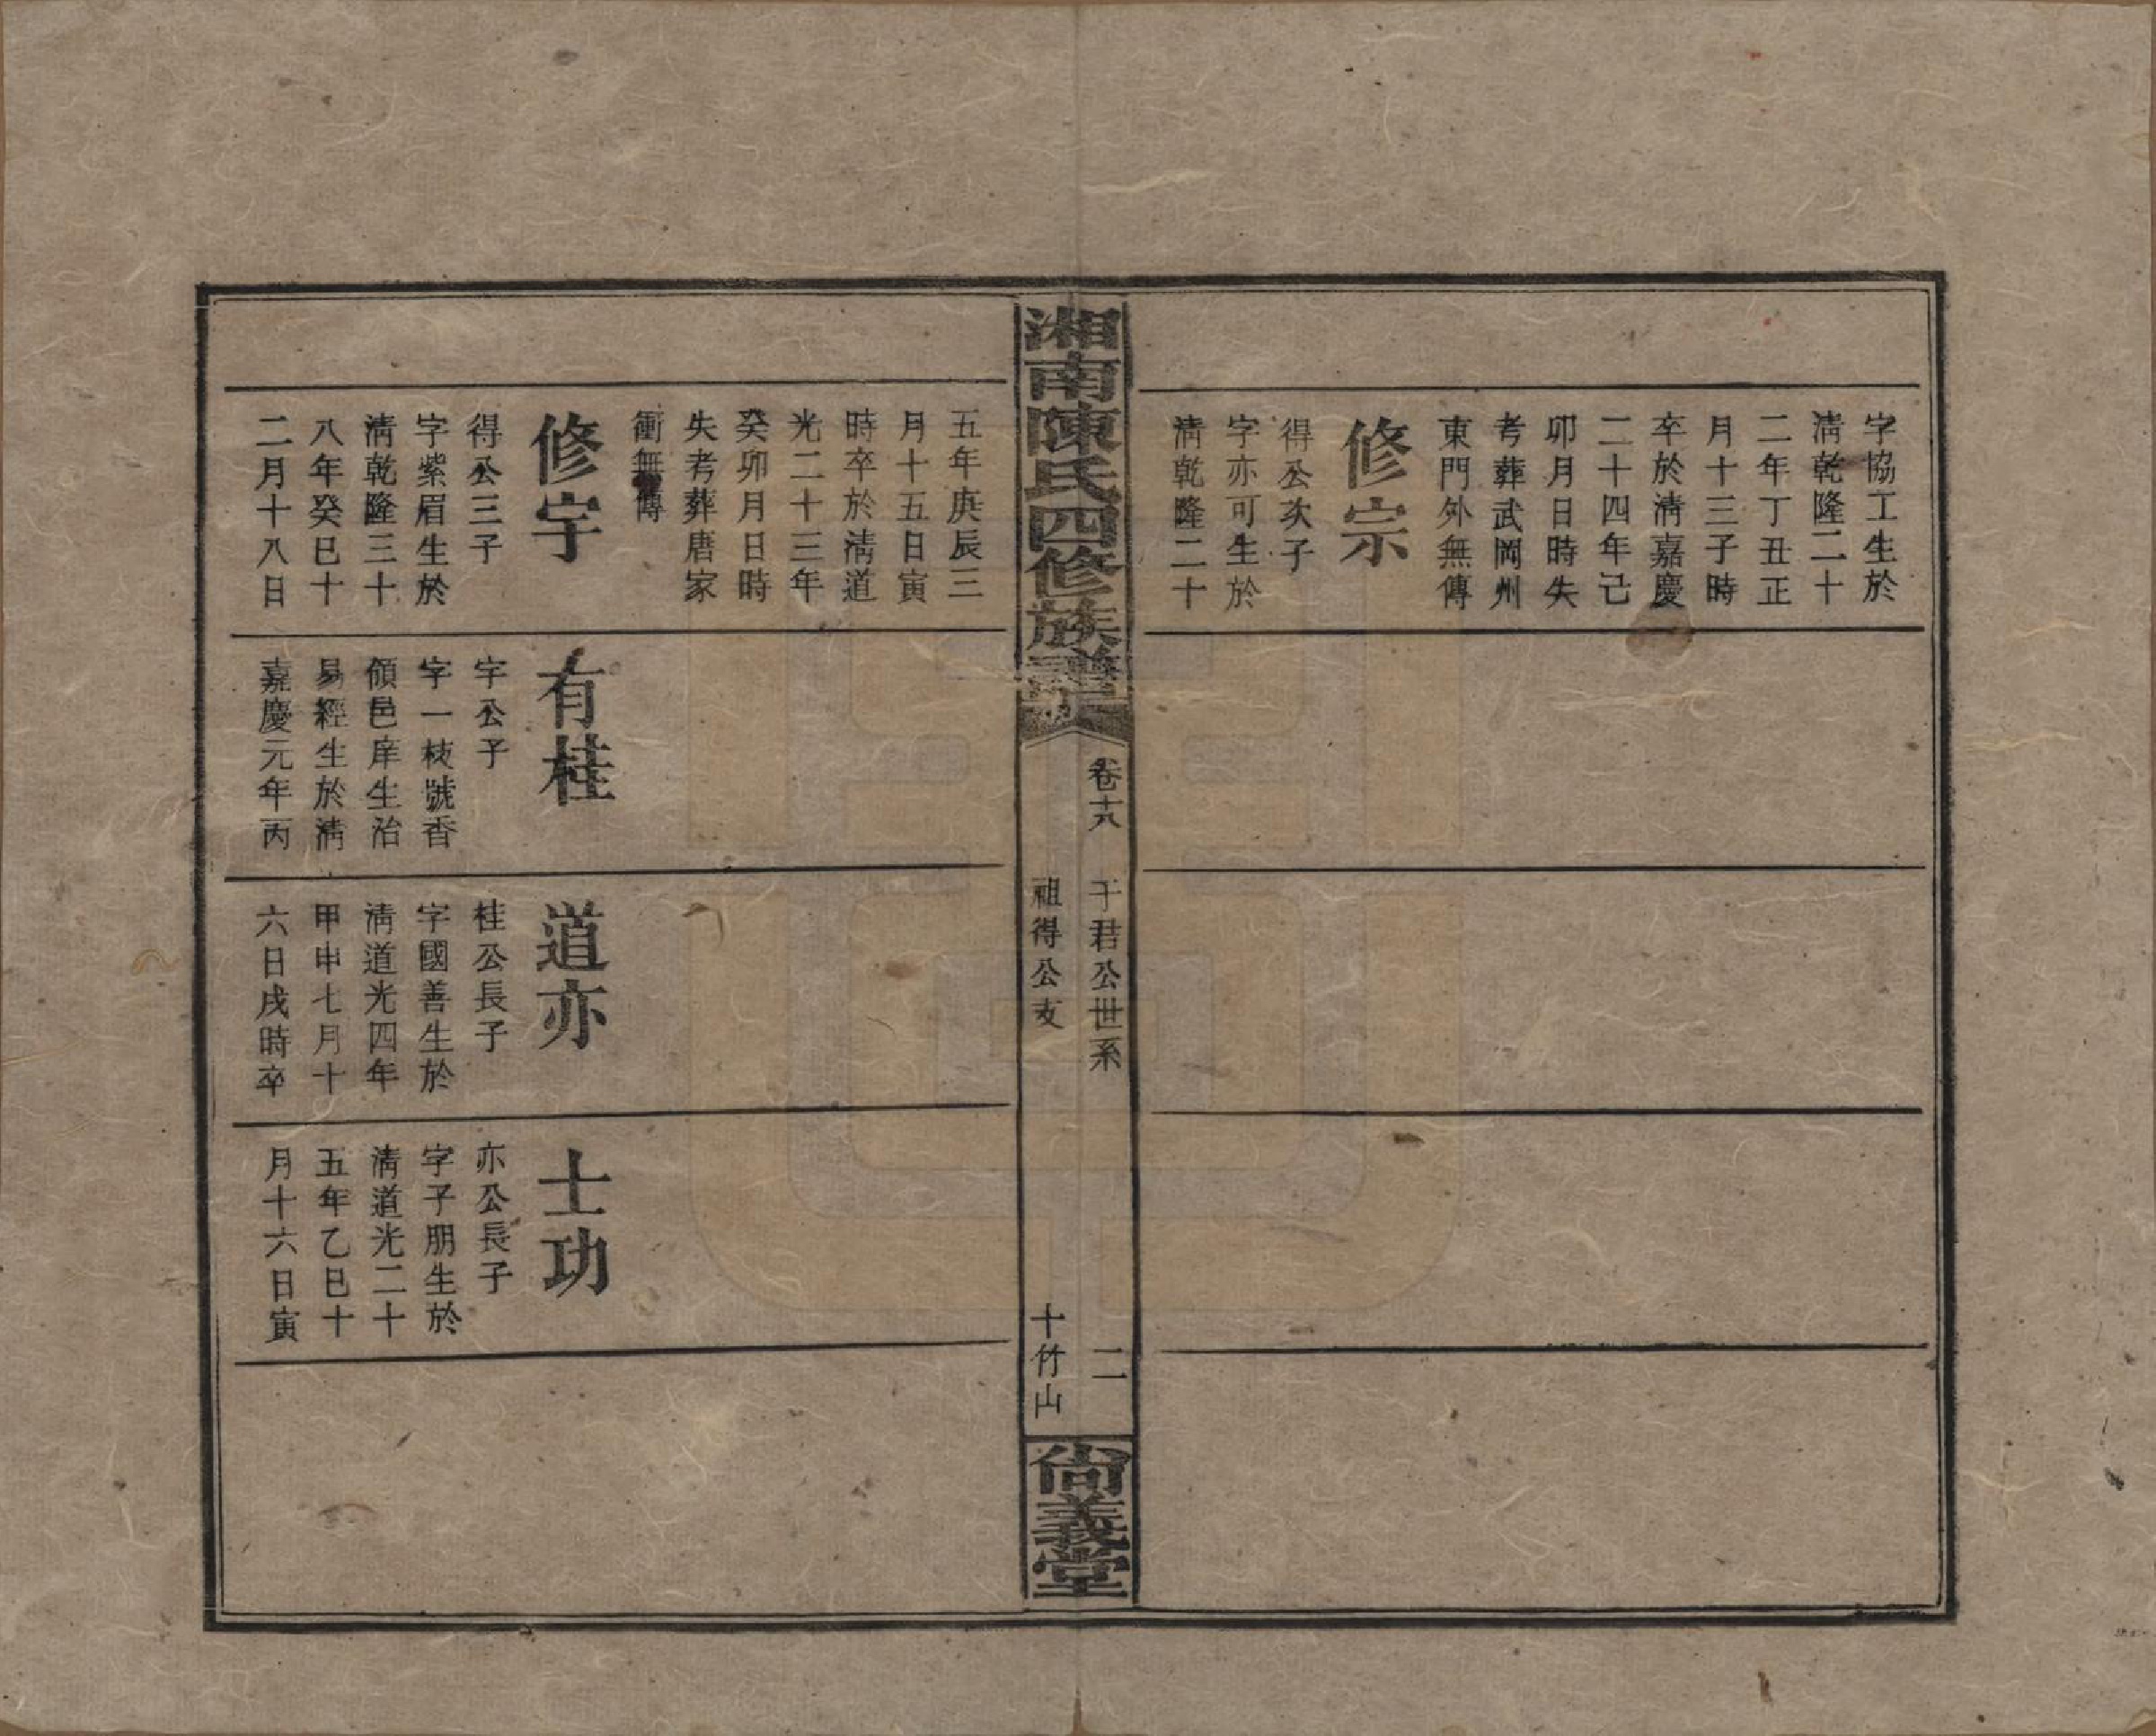 字協工生於
淸乾隆二十
二年丁丑正
月十三子時
卒於淸嘉慶
二十四年己
卯月日時失
考葬武岡州
東門外無傳
修宗
得公次子
字亦可生於
淸乾隆二十
湘南陳氏四修族譜
卷十八
干君公世系
二
祖得公支
十竹山
尙義堂
五年庚辰三
月十五日寅
時卒於淸道
光二十三年
癸卯月日時
失考葬唐家
衝無傳
修字
得公三子
字紫眉生於
淸乾隆三十
八年癸巳十
二月十八日
有桂
字公子
字一枝號香
領邑庠生治
易經生於淸
嘉慶元年丙
道亦
桂公長子
字國善生於
淸道光四年
甲申七月十
六日戌時卒
士功
亦公長子
字子朋生於
淸道光二十
五年乙巳十
月十六日寅